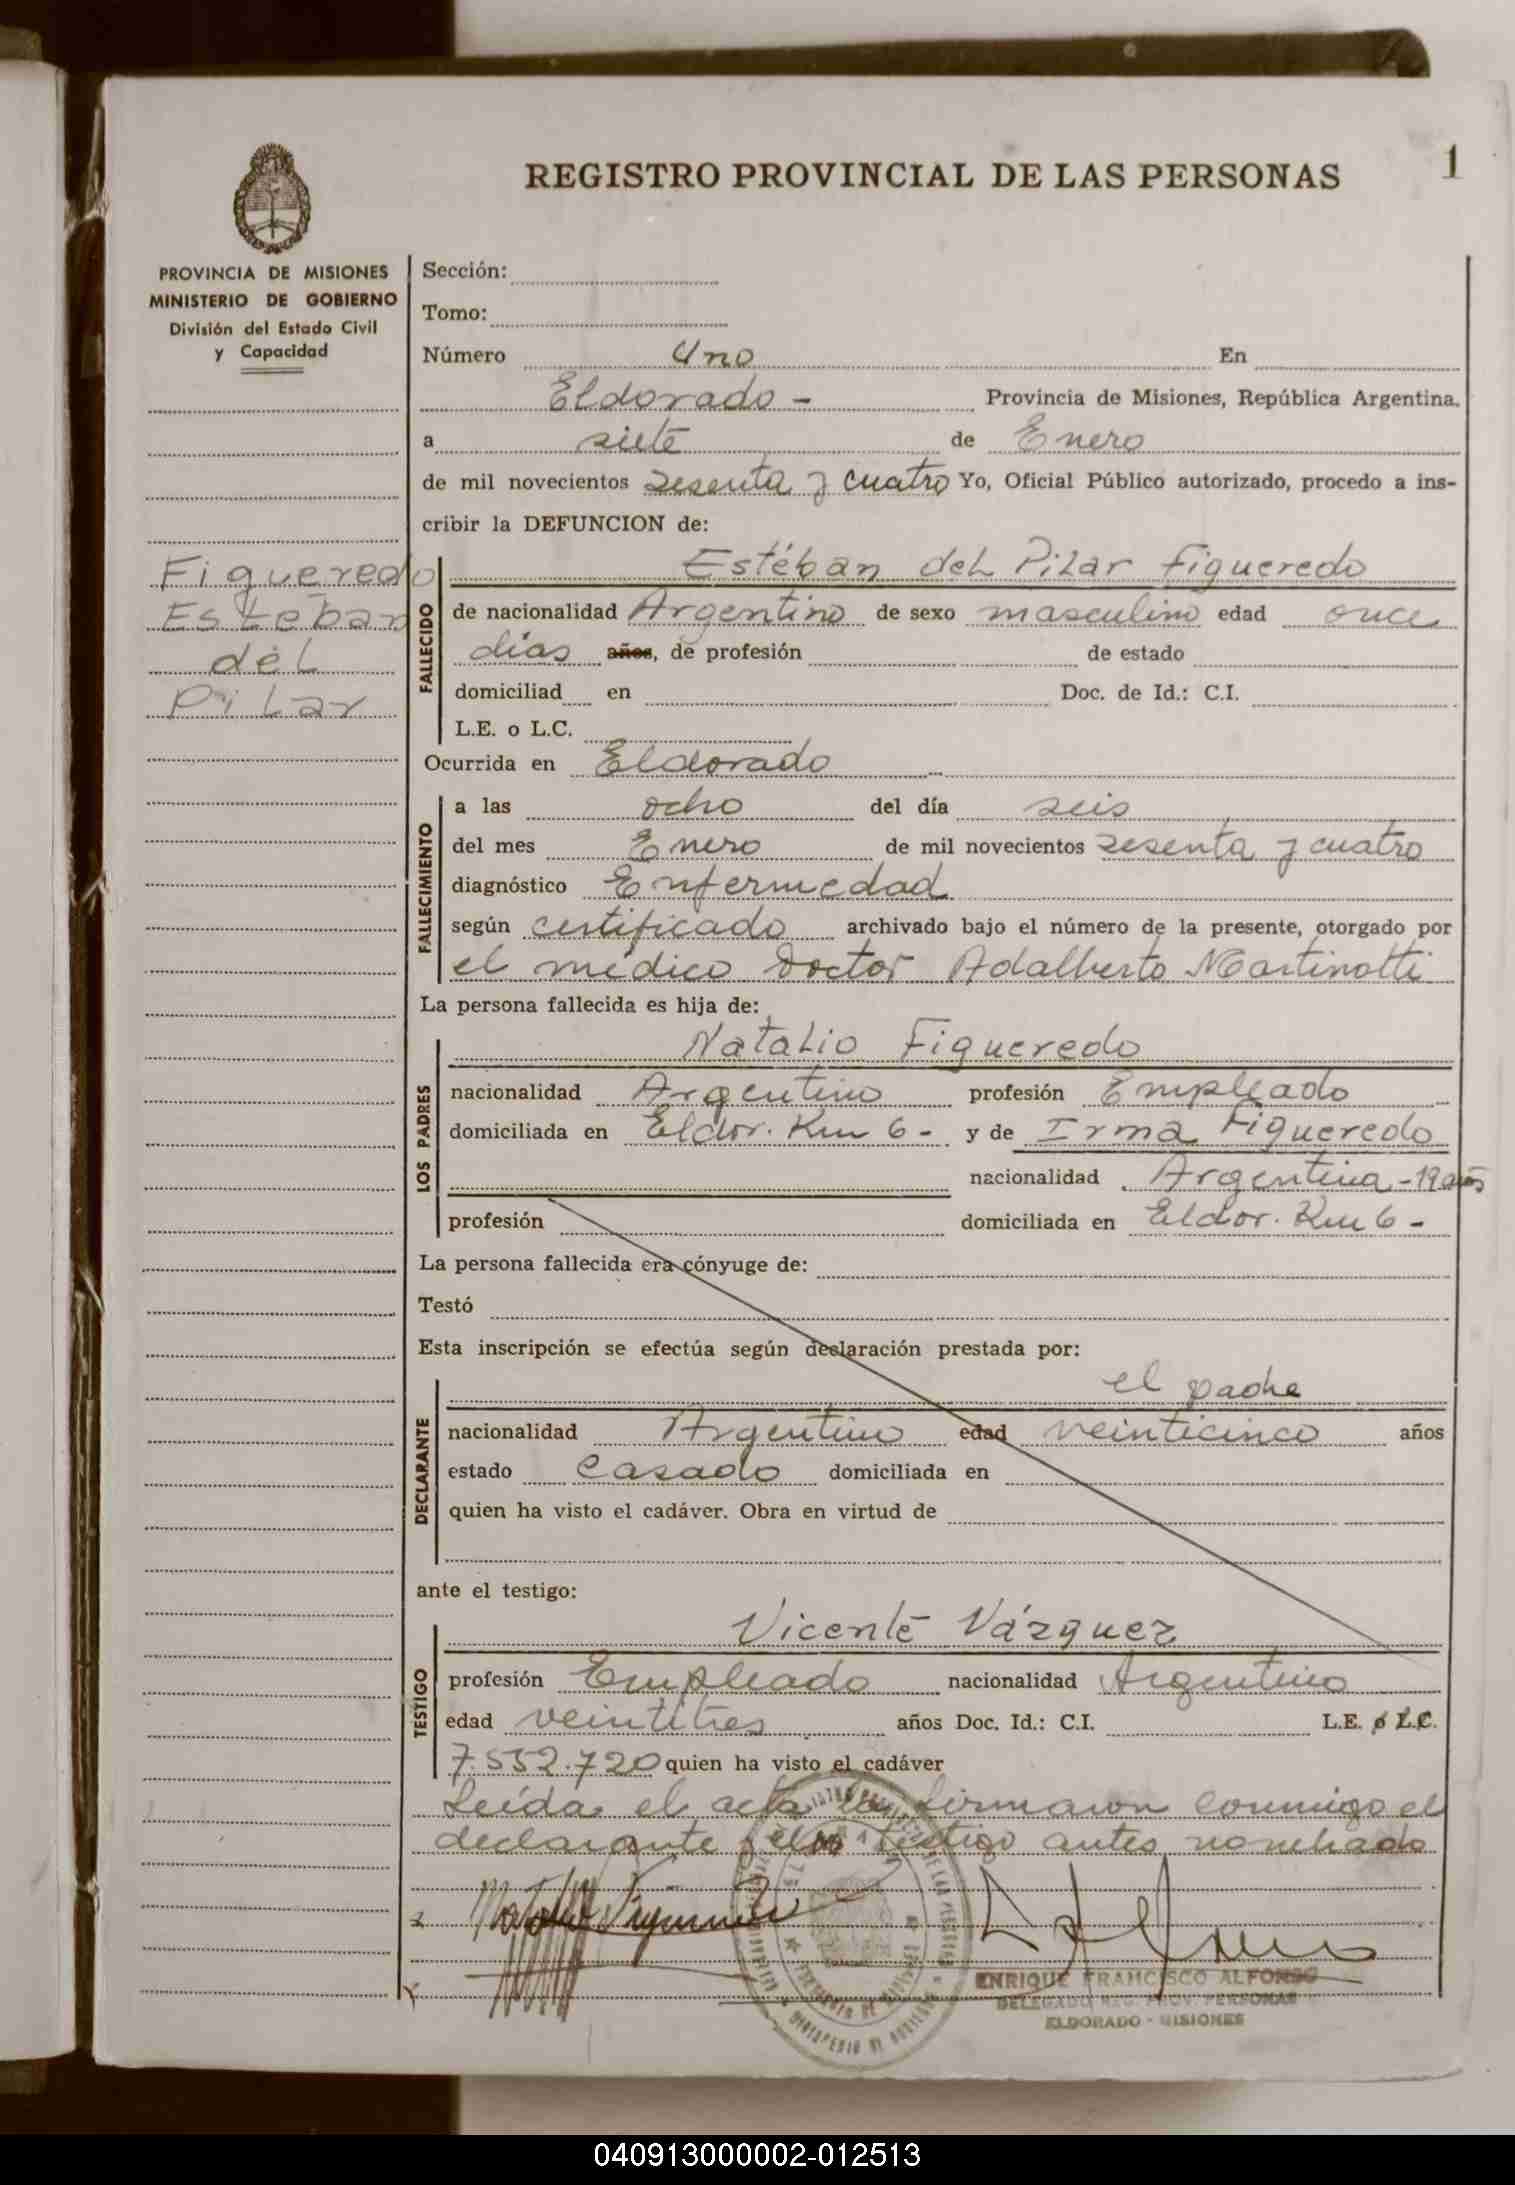 1
REGISTRO PROVINCIAL DE LAS PERSONAS
PROVINCIA DE MISIONES
MINISTERIO DE GOBIERNO
División del Estado Civil
y Capacidad
Figueredo
Esteban
del
Pilar
Sección:
Tomo:
Número Uno En
Eldorado - Provincia de Misiones, República Argentina.
a siete de Enero
de mil novecientos sesenta y cuatro Yo, Oficial Público autorizado, procedo a ins-
cribir la DEFUNCION de:
FALLECIDO
Estéban del Pilar Figueredo
de nacionalidad Argentino de sexo masculino edad once
días años, de profesión de estado
domiciliad en Doc. de Id.: C.I.
L.E. o L.C.
Ocurrida en Eldorado
FALLECIMIENTO
a las ocho del día seis
del mes Enero de mil novecientos sesenta y cuatro
diagnóstico Enfermedad
según certificado archivado bajo el número de la presente, otorgado por
el médico Doctor Adalberto Martinotti
La persona fallecida es hija de:
LOS PADRES
Natalio Figueredo
nacionalidad Argentino profesión Empleado
domiciliada en Eldor. Km 6- y de Irma Figueredo
nacionalidad Argentina - 19 años
profesión domiciliada en Eldor. Km 6-
La persona fallecida era cónyuge de:
Testó
Esta inscripción se efectúa según declaración prestada por:
DECLARANTE
el padre
nacionalidad Argentino edad veinticinco años
estado Casado domiciliada en
quien ha visto el cadáver. Obra en virtud de
ante el testigo:
TESTIGO
Vicente Vázquez
profesión Empleado nacionalidad Argentino
edad veintitres años Doc. Id.: C.I. L.E. o L.C.
7.552.720 quien ha visto el cadáver
Leída el acta la firmaron conmigo el
declarante y el testigo antes nombrado
Natalio Figueredo
ENRIQUE FRANCISCO ALFONSO
DELEGADO REG. PROV. PERSONAS
ELDORADO - MISIONES
040913000002-012513